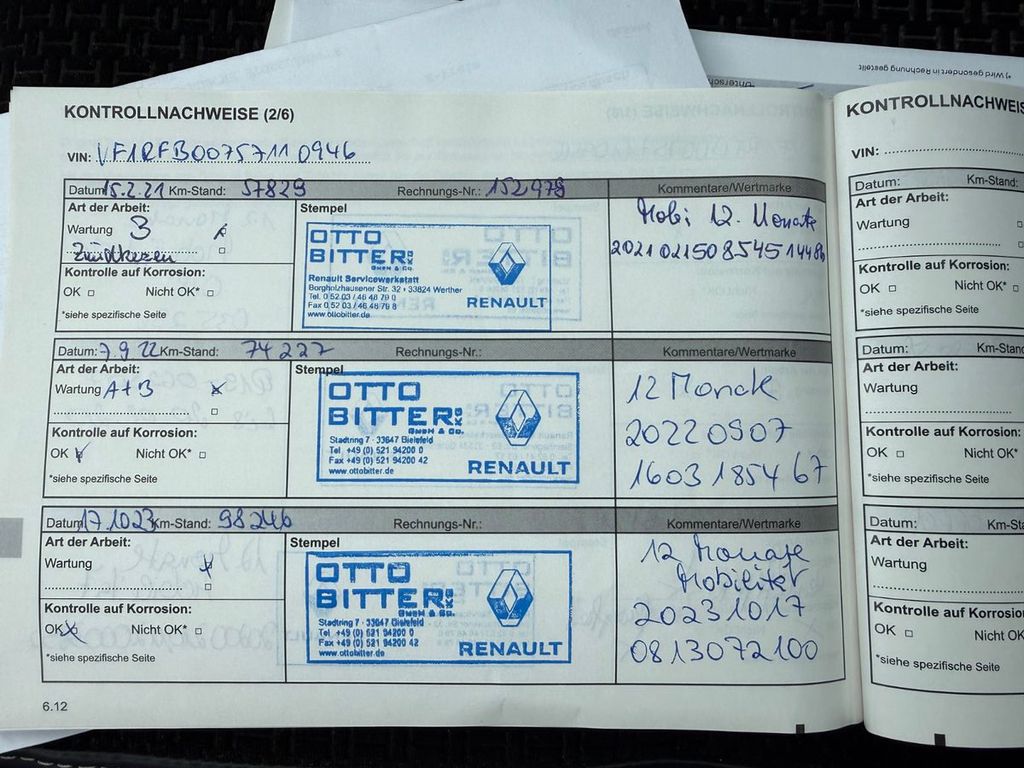 *) Wird gesondert in Rechnung gestellt
KONTROLLNACHWEISE (2/6)
VIN: VF1RFB00757110946
Datum: 15.2.21 Km-Stand: 57829 Rechnungs-Nr.: 152978 Kommentare/Wertmarke
Art der Arbeit:
Wartung B
Zündkerzen
Kontrolle auf Korrosion:
OK Nicht OK*
*siehe spezifische Seite
Stempel
OTTO
BITTER KG
GmbH & Co.
Renault Servicewerkstatt
Borgholzhausener Str. 32 · 33824 Werther
Tel. 0 52 03 / 46 48 79 0
Fax 0 52 03 / 46 48 79 8
www.ottobitter.de
RENAULT
Mobi 12. Monate
Datum: 7.9 22 Km-Stand: 74227 Rechnungs-Nr.: Kommentare/Wertmarke
Art der Arbeit:
Wartung A+B
Kontrolle auf Korrosion:
OK Nicht OK*
*siehe spezifische Seite
Stempel
OTTO
BITTER KG
GmbH & Co.
Stadtring 7 · 33647 Bielefeld
Tel +49 (0) 521 94200 0
Fax +49 (0) 521 94200 42
www.ottobitter.de
RENAULT
12 Monate
20220907
1603185467
Datum: 17.10 23 Km-Stand: 98246 Rechnungs-Nr.: Kommentare/Wertmarke
Art der Arbeit:
Wartung
Kontrolle auf Korrosion:
OK Nicht OK*
*siehe spezifische Seite
Stempel
OTTO
BITTER KG
GmbH & Co.
Stadtring 7 · 33647 Bielefeld
Tel. +49 (0) 521 94200 0
Fax +49 (0) 521 94200 42
www.ottobitter.de
RENAULT
12 Monate
Mobilität
20231017
0813072100
6.12
KONTROLLNACHWEIS
VIN:
Datum: Km-Stand:
Art der Arbeit:
Wartung
Kontrolle auf Korrosion:
OK Nicht OK*
*siehe spezifische Seite
Datum: Km-Stand
Art der Arbeit:
Wartung
Kontrolle auf Korrosion:
OK Nicht OK*
*siehe spezifische Seite
Datum: Km-St
Art der Arbeit:
Wartung
Kontrolle auf Korrosion
OK Nicht OK*
*siehe spezifische Seite